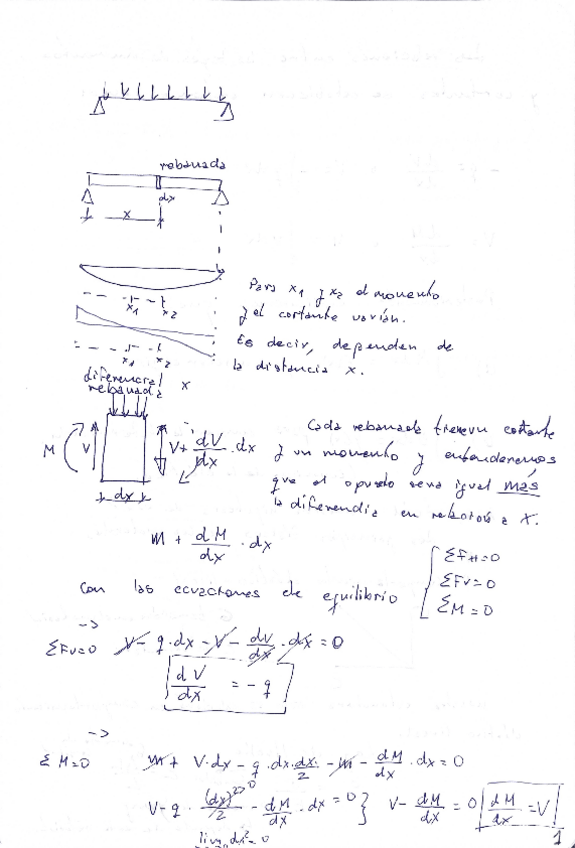 rebanada
dx
x
Para x1 y x2 el momento
y el cortante varían.
x1 x2
Es decir, dependen de
la distancia x.
x1 x2
diferencial x
rebanada
Cada rebanada tiene un cortante
M V V + dV/dx · dx
y un momento y entenderemos
que el opuesto sera igual más
la diferencia en relación a x.
dx
M + dM/dx · dx
Con las ecuaciones de equilibrio
ΣFH=0
ΣFV=0
ΣM=0
->
ΣFV=0 V - q·dx - V - dV/dx · dx = 0
dV/dx = -q
->
ΣM=0 M + V·dx - q·dx·dx/2 - M - dM/dx · dx = 0
V - q · (dx)²/2 →0 - dM/dx · dx = 0 } V - dM/dx = 0 dM/dx = V
lim dx² = 0
1